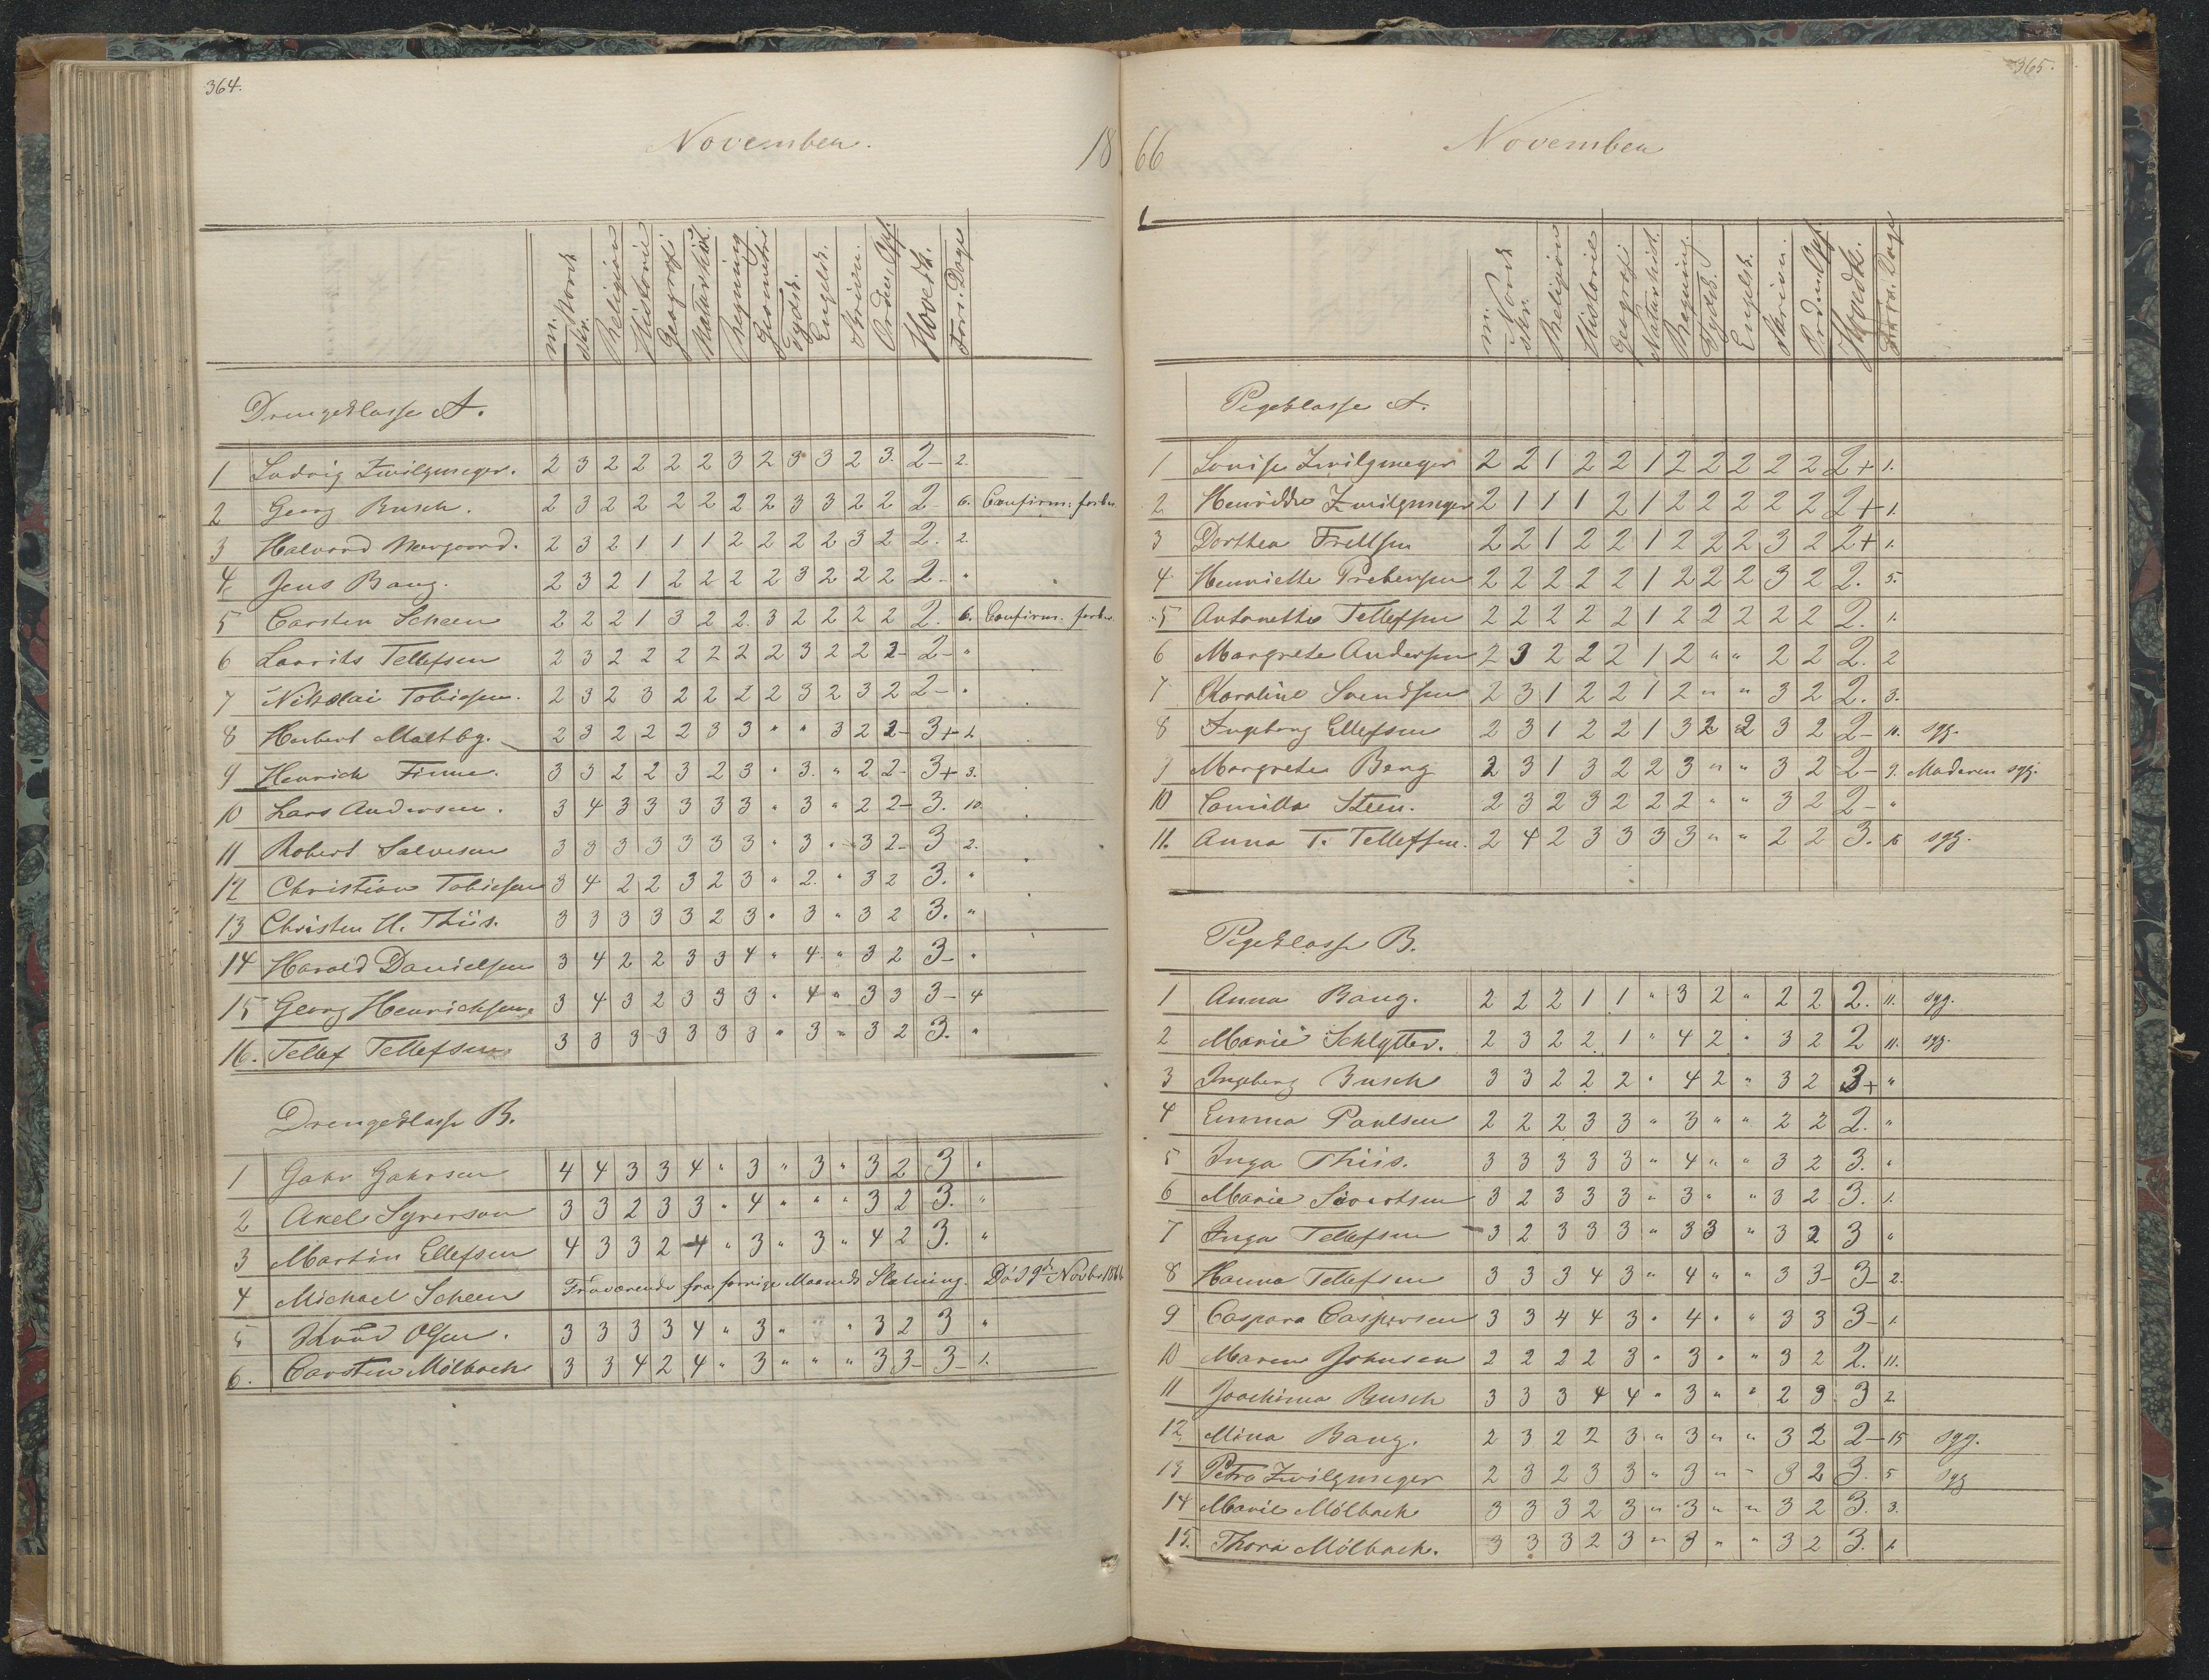 364.
November.
18
m. Norsk
skr.
Religion
Historie
Geografi
Naturhist.
Regning
Geometri
Tydsk.
Engelsk.
Skrivn.
Orden Opf.
Hovedk.
Fors. Dage
Drengeklasse A.
1 Ludvig Zwilgmeyer. 2 3 2 2 2 2 3 2 3 3 2 3. 2- 2.
2 Georg Busch. 2 3 2 2 2 2 2 2 3 3 2 2 2 6. Confirm: forber.
3 Halvord Norgaard. 2 3 2 1 1 1 2 2 2 2 3 2 2. 2.
4. Jens Bang. 2 3 2 1 2 2 2 2 3 2 2 2 2. "
5 Carsten Scheen 2 2 2 1 3 2 2. 3 2 2 2 2 2. 6. Confirm. forber.
6 Laurits Tellefsen 2 3 2 2 2 2 2 2 3 2 2 2- 2- "
7 Nikolai Tobiesen. 2 3 2 3 2 2 2 2 3 2 3 2 2- "
8 Herbert Maltbg. 2 3 2 2 2 3 3 " " 3 2 2- 3+ 1.
9 Henrich Finne. 3 3 2 2 3 2 3 " 3. " 2 2- 3+ 3.
10 Lars Andersen. 3 4 3 3 3 3 3 " 3 " 2 2- 3. 10
11 Robert Salvesen 3 3 3 3 3 3 3 " 3 " 3 2- 3 2.
12 Christian Tobiesen 3 4 2 2 3 2 3 " 2. " 3 2 3. "
13 Christen H. Thiis. 3 3 3 3 3 2 3 " 3 " 3 2 3. "
14 Harald Danielsen 3 4 2 2 3 3 4 " 4 " 3 2 3- "
15 Georg Henrichsen 3 4 3 2 3 3 3 " 4 " 3 3 3- 4
16. Tellef Tellefsen 3 3 3 3 3 3 3 " 3 " 3 2 3. "
Drengeklasse B.
1 Gahr Gahrsen 4 4 3 3 4 " 3 " 3 " 3 2 3 "
2 Axel Syverson 3 3 2 3 3 " 4 " " " 3 2 3. "
3 Martin Ellefsen 4 3 3 2 4 " 3 " 3 " 4 2 3. "
4 Michael Scheen Fraværende fra forrige Maaneds Slutning. Død 9de Novbr 1866
5 Knud Olsen. 3 3 3 3 4 " 3 " " 3 2 3 "
6. Carsten Mølbach 3 3 4 2 4 " 3 " " " 3 3- 3- 1.
365.
66
November
m. Norsk
skr.
Religion
Historie
Geografi
Naturhist.
Regning.
Tydsk.
Engelsk.
Skrivn.
Orden Opf
Hovedk.
Fors. Dage
Pigeklasse A.
1 Louise Zwilgmeyer 2 2 1 2 2 1 2 2 2 2 2 2+ 1.
2 Henrikke Zwilgmeyer 2 1 1 1 2 1 2 2 2 2 2 2+ 1.
3 Dorthea Frellsen 2 2 1 2 2 1 2 2 2 3 2 2+ 1.
4 Henriette Prebensen 2 2 2 2 2 1 2 2 2 3 2 2. 5.
5 Antonette Tellefsen 2 2 2 2 2 1 2 2 2 2 2 2. 1.
6 Margrete Andersen 2 3 2 2 2 1 2 " " 2 2 2. 2
7 Karoline Svendsen 2 3 1 2 2 1 2 " " 3 2 2. 3.
8 Ingeborg Ellefsen 2 3 1 2 2 1 3 2 2 3 2 2- 11. syg.
9 Margrete Berg 2 3 1 3 2 2 3 " " 3 2 2- 9. Moderen syg.
10 Camilla Steen. 2 3 2 3 2 2 2 " " 3 2 2- "
11. Anna T. Tellefsen. 2 4 2 3 3 3 3 " " 2 2 3. 15 syg.
Pigeklasse B.
1 Anna Bang. 2 2 2 1 1 " 3 2 " 2 2 2. 11. syg.
2 Marie Schlytter. 2 3 2 2 1 " 4 2 " 3 2 2 11. syg.
3 Ingeborg Busch 3 3 2 2 2 " 4 2 " 3 2 3+ "
4 Emma Paulsen 2 2 2 3 3 " 3 " " 2 2 2. "
5 Inga Thiis. 3 3 3 3 3 " 4 " " 3 2 3. "
6 Marie Sivertsen 3 2 3 3 3 " 3 " " 3 2 3. 1.
7 Inga Tellefsen 3 2 3 3 3 " 3 3 " 3 2 3 "
8 Hanna Tellefsen 3 3 3 4 3 " 4 " " 3 3- 3- 2.
9 Caspara Caspersen 3 3 4 4 3 " 4 " " 3 3 3- 1.
10 Maren Johnsen 2 2 2 2 3 " 3 " " 3 2 2. 11.
11 Joachima Busch 3 3 3 4 4 " 3 " " 2 3 3 2
12 Mina Bang. 2 3 2 2 3 " 3 " " 3 2 2- 15 syg.
13 Petra Zwilgmeyer 2 3 2 3 3 " 3 " " 3 2 3. 5 syg
14 Marie Mölbach 3 3 3 2 3 " 3 " " 3 2 3. 3.
15. Thora Mölbach. 3 3 3 2 3 " 3 " " 3 2 3. 1.